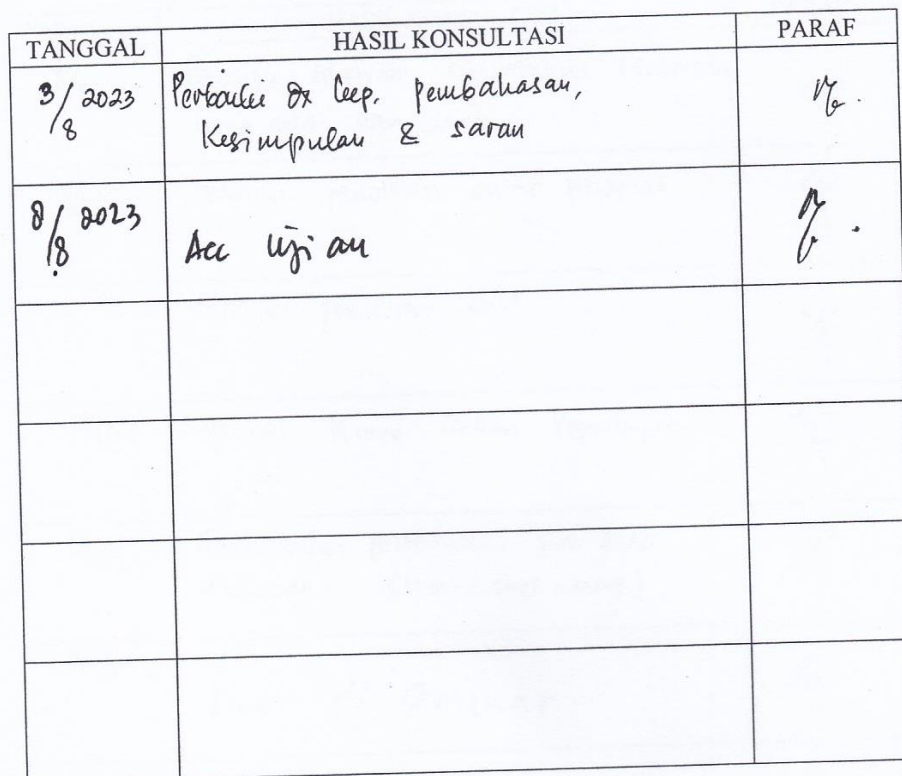 TANGGAL HASIL KONSULTASI PARAF
3/8 2023 Perbaiki Dx kep, pembahasan,
Kesimpulan & saran
8/8 2023 Acc Ujian